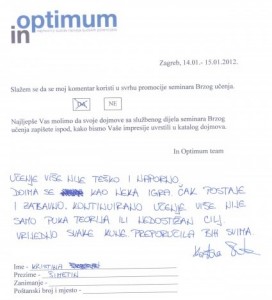 in optimum
Zagreb, 14.01.- 15.01.2012.
Slažem se da se moj komentar koristi u svrhu promocije seminara Brzog učenja.
DA NE
Najljepše Vas molimo da svoje dojmove sa službenog dijela seminara Brzog
učenja zapišete ispod, kako bismo Vaše impresije uvrstili u katalog dojmova.
In Optimum team
UČENJE VIŠE NIJE TEŠKO I NAPORNO
DOIMA SE KAO NEKA IGRA ČAK POSTAJE
I ZABAVNO. KONTINUIRANO UČENJE VIŠE NIJE
SAMO PUKA TEORIJA ILI NEDOSTIŽAN CILJ
VRIJEDNO SVAKE KUNE. PREPORUČILA BIH SVIMA
Ime - KRISTINA
Prezime - ŠIMETIN
Zanimanje -
Poštanski broj i mjesto -